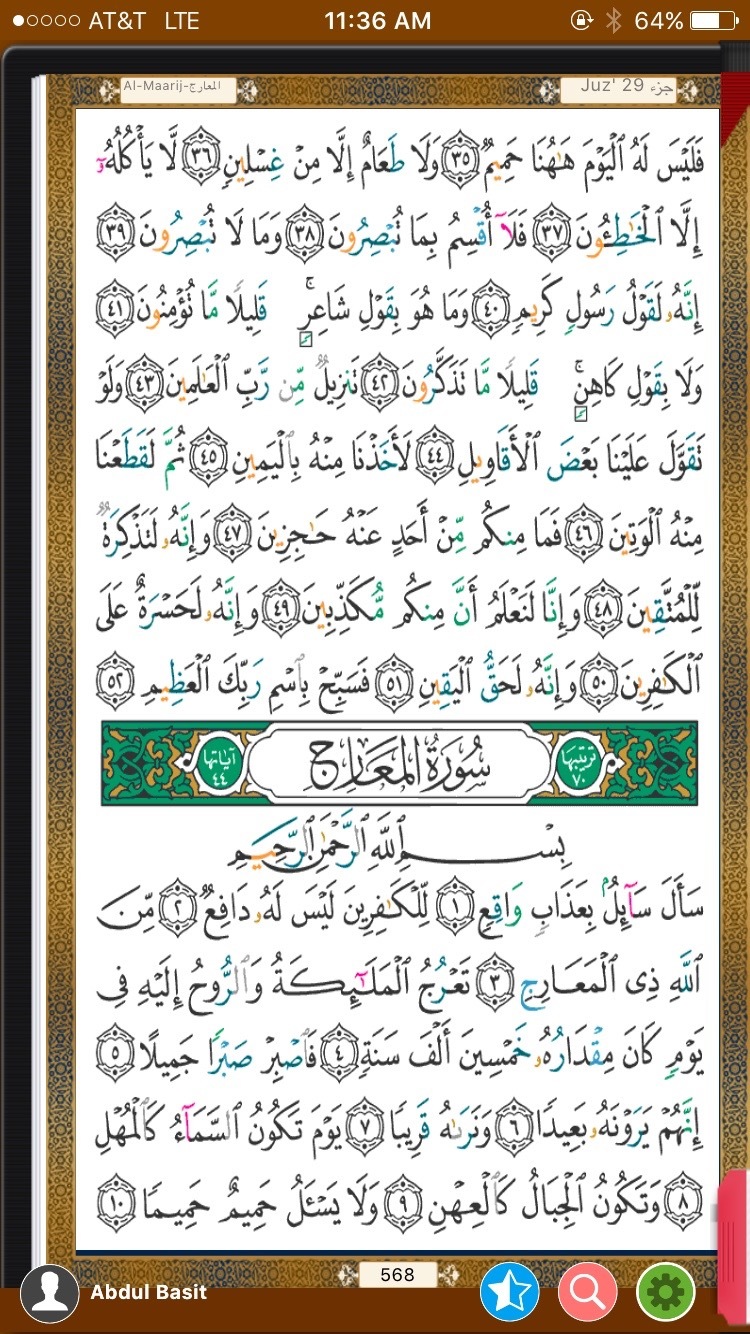 AT&T LTE 11:36 AM 64%
Al-Maarij-المعارج Juz' 29 جزء
فَلَيْسَ لَهُ ٱلْيَوْمَ هَٰهُنَا حَمِيمٌ ٣٥ وَلَا طَعَامٌ إِلَّا مِنْ غِسْلِينٍ ٣٦ لَّا يَأْكُلُهُۥٓ
إِلَّا ٱلْخَٰطِـُٔونَ ٣٧ فَلَآ أُقْسِمُ بِمَا تُبْصِرُونَ ٣٨ وَمَا لَا تُبْصِرُونَ ٣٩
إِنَّهُۥ لَقَوْلُ رَسُولٍ كَرِيمٍ ٤٠ وَمَا هُوَ بِقَوْلِ شَاعِرٍ ۚ قَلِيلًا مَّا تُؤْمِنُونَ ٤١
وَلَا بِقَوْلِ كَاهِنٍ ۚ قَلِيلًا مَّا تَذَكَّرُونَ ٤٢ تَنزِيلٌ مِّن رَّبِّ ٱلْعَٰلَمِينَ ٤٣ وَلَوْ
تَقَوَّلَ عَلَيْنَا بَعْضَ ٱلْأَقَاوِيلِ ٤٤ لَأَخَذْنَا مِنْهُ بِٱلْيَمِينِ ٤٥ ثُمَّ لَقَطَعْنَا
مِنْهُ ٱلْوَتِينَ ٤٦ فَمَا مِنكُم مِّنْ أَحَدٍ عَنْهُ حَٰجِزِينَ ٤٧ وَإِنَّهُۥ لَتَذْكِرَةٌ
لِّلْمُتَّقِينَ ٤٨ وَإِنَّا لَنَعْلَمُ أَنَّ مِنكُم مُّكَذِّبِينَ ٤٩ وَإِنَّهُۥ لَحَسْرَةٌ عَلَى
ٱلْكَٰفِرِينَ ٥٠ وَإِنَّهُۥ لَحَقُّ ٱلْيَقِينِ ٥١ فَسَبِّحْ بِٱسْمِ رَبِّكَ ٱلْعَظِيمِ ٥٢
ترتيبها ٧٠ سُورَةُ المَعَارِج آياتها ٤٤
بِسْمِ ٱللَّهِ ٱلرَّحْمَٰنِ ٱلرَّحِيمِ
سَأَلَ سَآئِلٌۢ بِعَذَابٍ وَاقِعٍ ١ لِّلْكَٰفِرِينَ لَيْسَ لَهُۥ دَافِعٌ ٢ مِّنَ
ٱللَّهِ ذِى ٱلْمَعَارِجِ ٣ تَعْرُجُ ٱلْمَلَٰٓئِكَةُ وَٱلرُّوحُ إِلَيْهِ فِى
يَوْمٍ كَانَ مِقْدَارُهُۥ خَمْسِينَ أَلْفَ سَنَةٍ ٤ فَٱصْبِرْ صَبْرًا جَمِيلًا ٥
إِنَّهُمْ يَرَوْنَهُۥ بَعِيدًا ٦ وَنَرَىٰهُ قَرِيبًا ٧ يَوْمَ تَكُونُ ٱلسَّمَآءُ كَٱلْمُهْلِ
٨ وَتَكُونُ ٱلْجِبَالُ كَٱلْعِهْنِ ٩ وَلَا يَسْـَٔلُ حَمِيمٌ حَمِيمًا ١٠
568
Abdul Basit